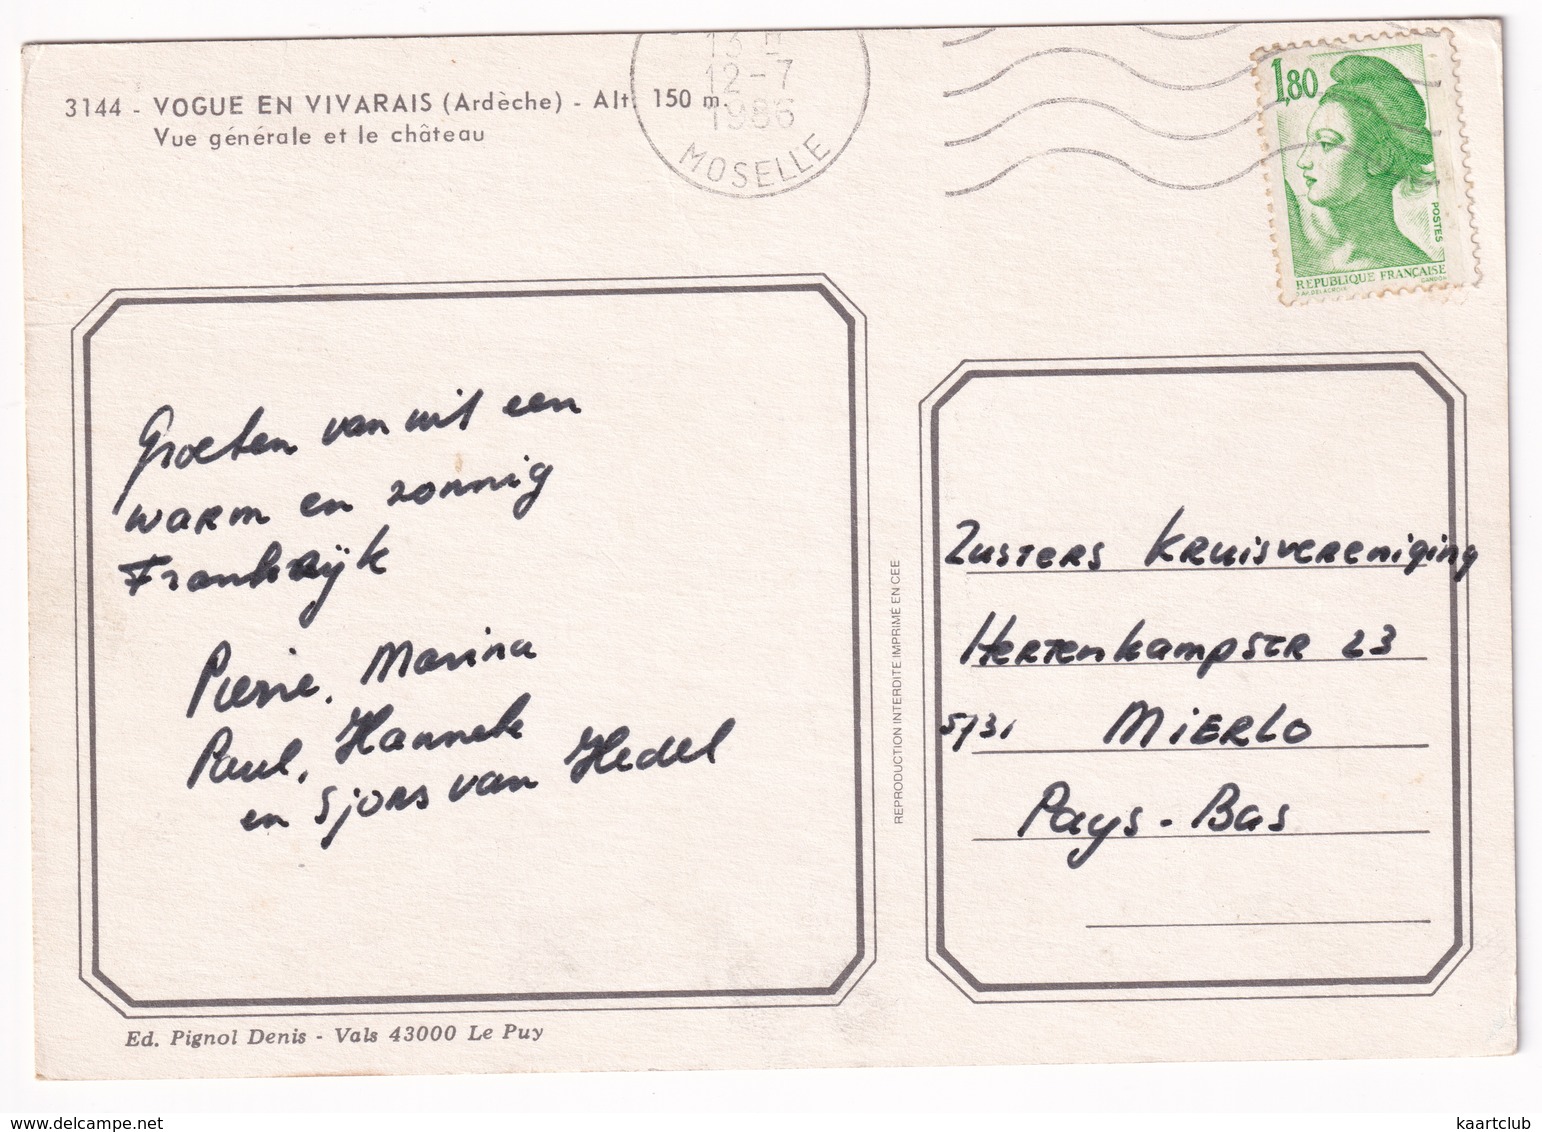 3144 - VOGUE EN VIVARAIS (Ardèche) - Alt. 150 m.
Vue générale et le château
12-7
1986
MOSELLE
1,80
POSTES
REPUBLIQUE FRANÇAISE
Groeten van uit een
warm en zonnig
Frankrijk
Pierre, Marina
Paul, Hanneke
en Sjors van Hedel
REPRODUCTION INTERDITE IMPRIMÉ EN CEE
ZUSTERS KRUISVERENIGING
HERTENKAMPSTR 23
5731 MIERLO
Pays-Bas
Ed. Pignol Denis - Vals 43000 Le Puy
www.delcampe.net
kaartclub